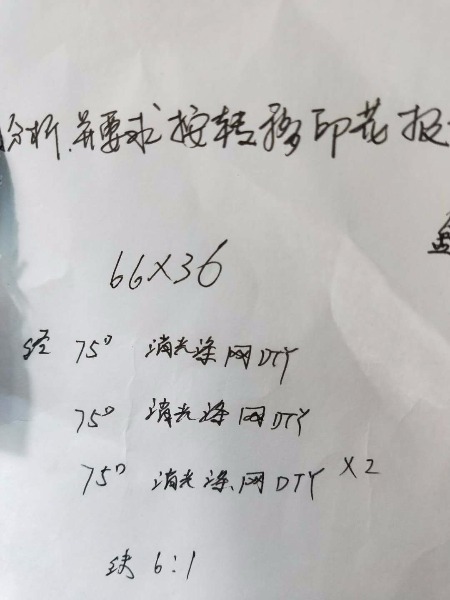 分析,并要求按转移印花报
66×36
经 75D 消光涤网DTY
75D 消光涤网DTY
75D 消光涤网DTY ×2
纬 6:1